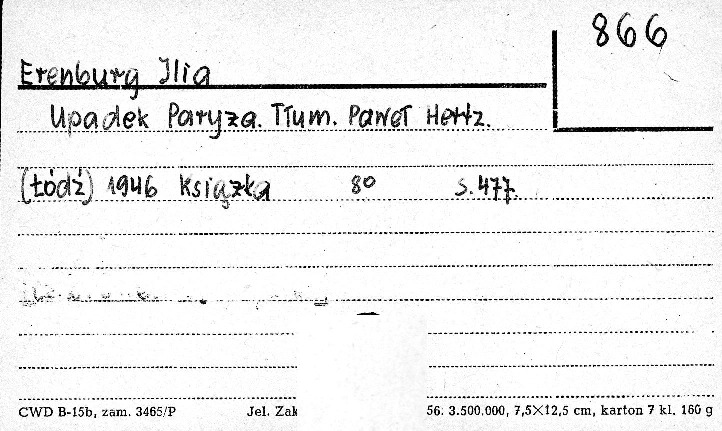 866
Erenburg Ilia
Upadek Paryża. Tłum. Paweł Hertz.
(Łódź) 1946 Książka 8° s. 477.
CWD B-15b, zam. 3465/P Jel. Zak 56. 3.500.000, 7,5×12,5 cm, karton 7 kl. 160 g